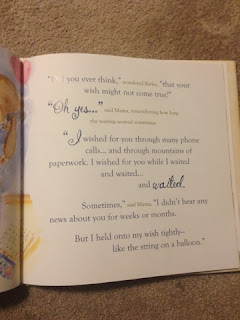 you ever think," wondered Barley, "that your
wish might not come true?"
"Oh yes..." said Mama, remembering how long
the waiting seemed sometimes.
"I wished for you through many phone
calls... and through mountains of
paperwork. I wished for you while I waited
and waited...
and waited.
Sometimes," said Mama, "I didn't hear any
news about you for weeks or months.
But I held onto my wish tightly—
like the string on a balloon."